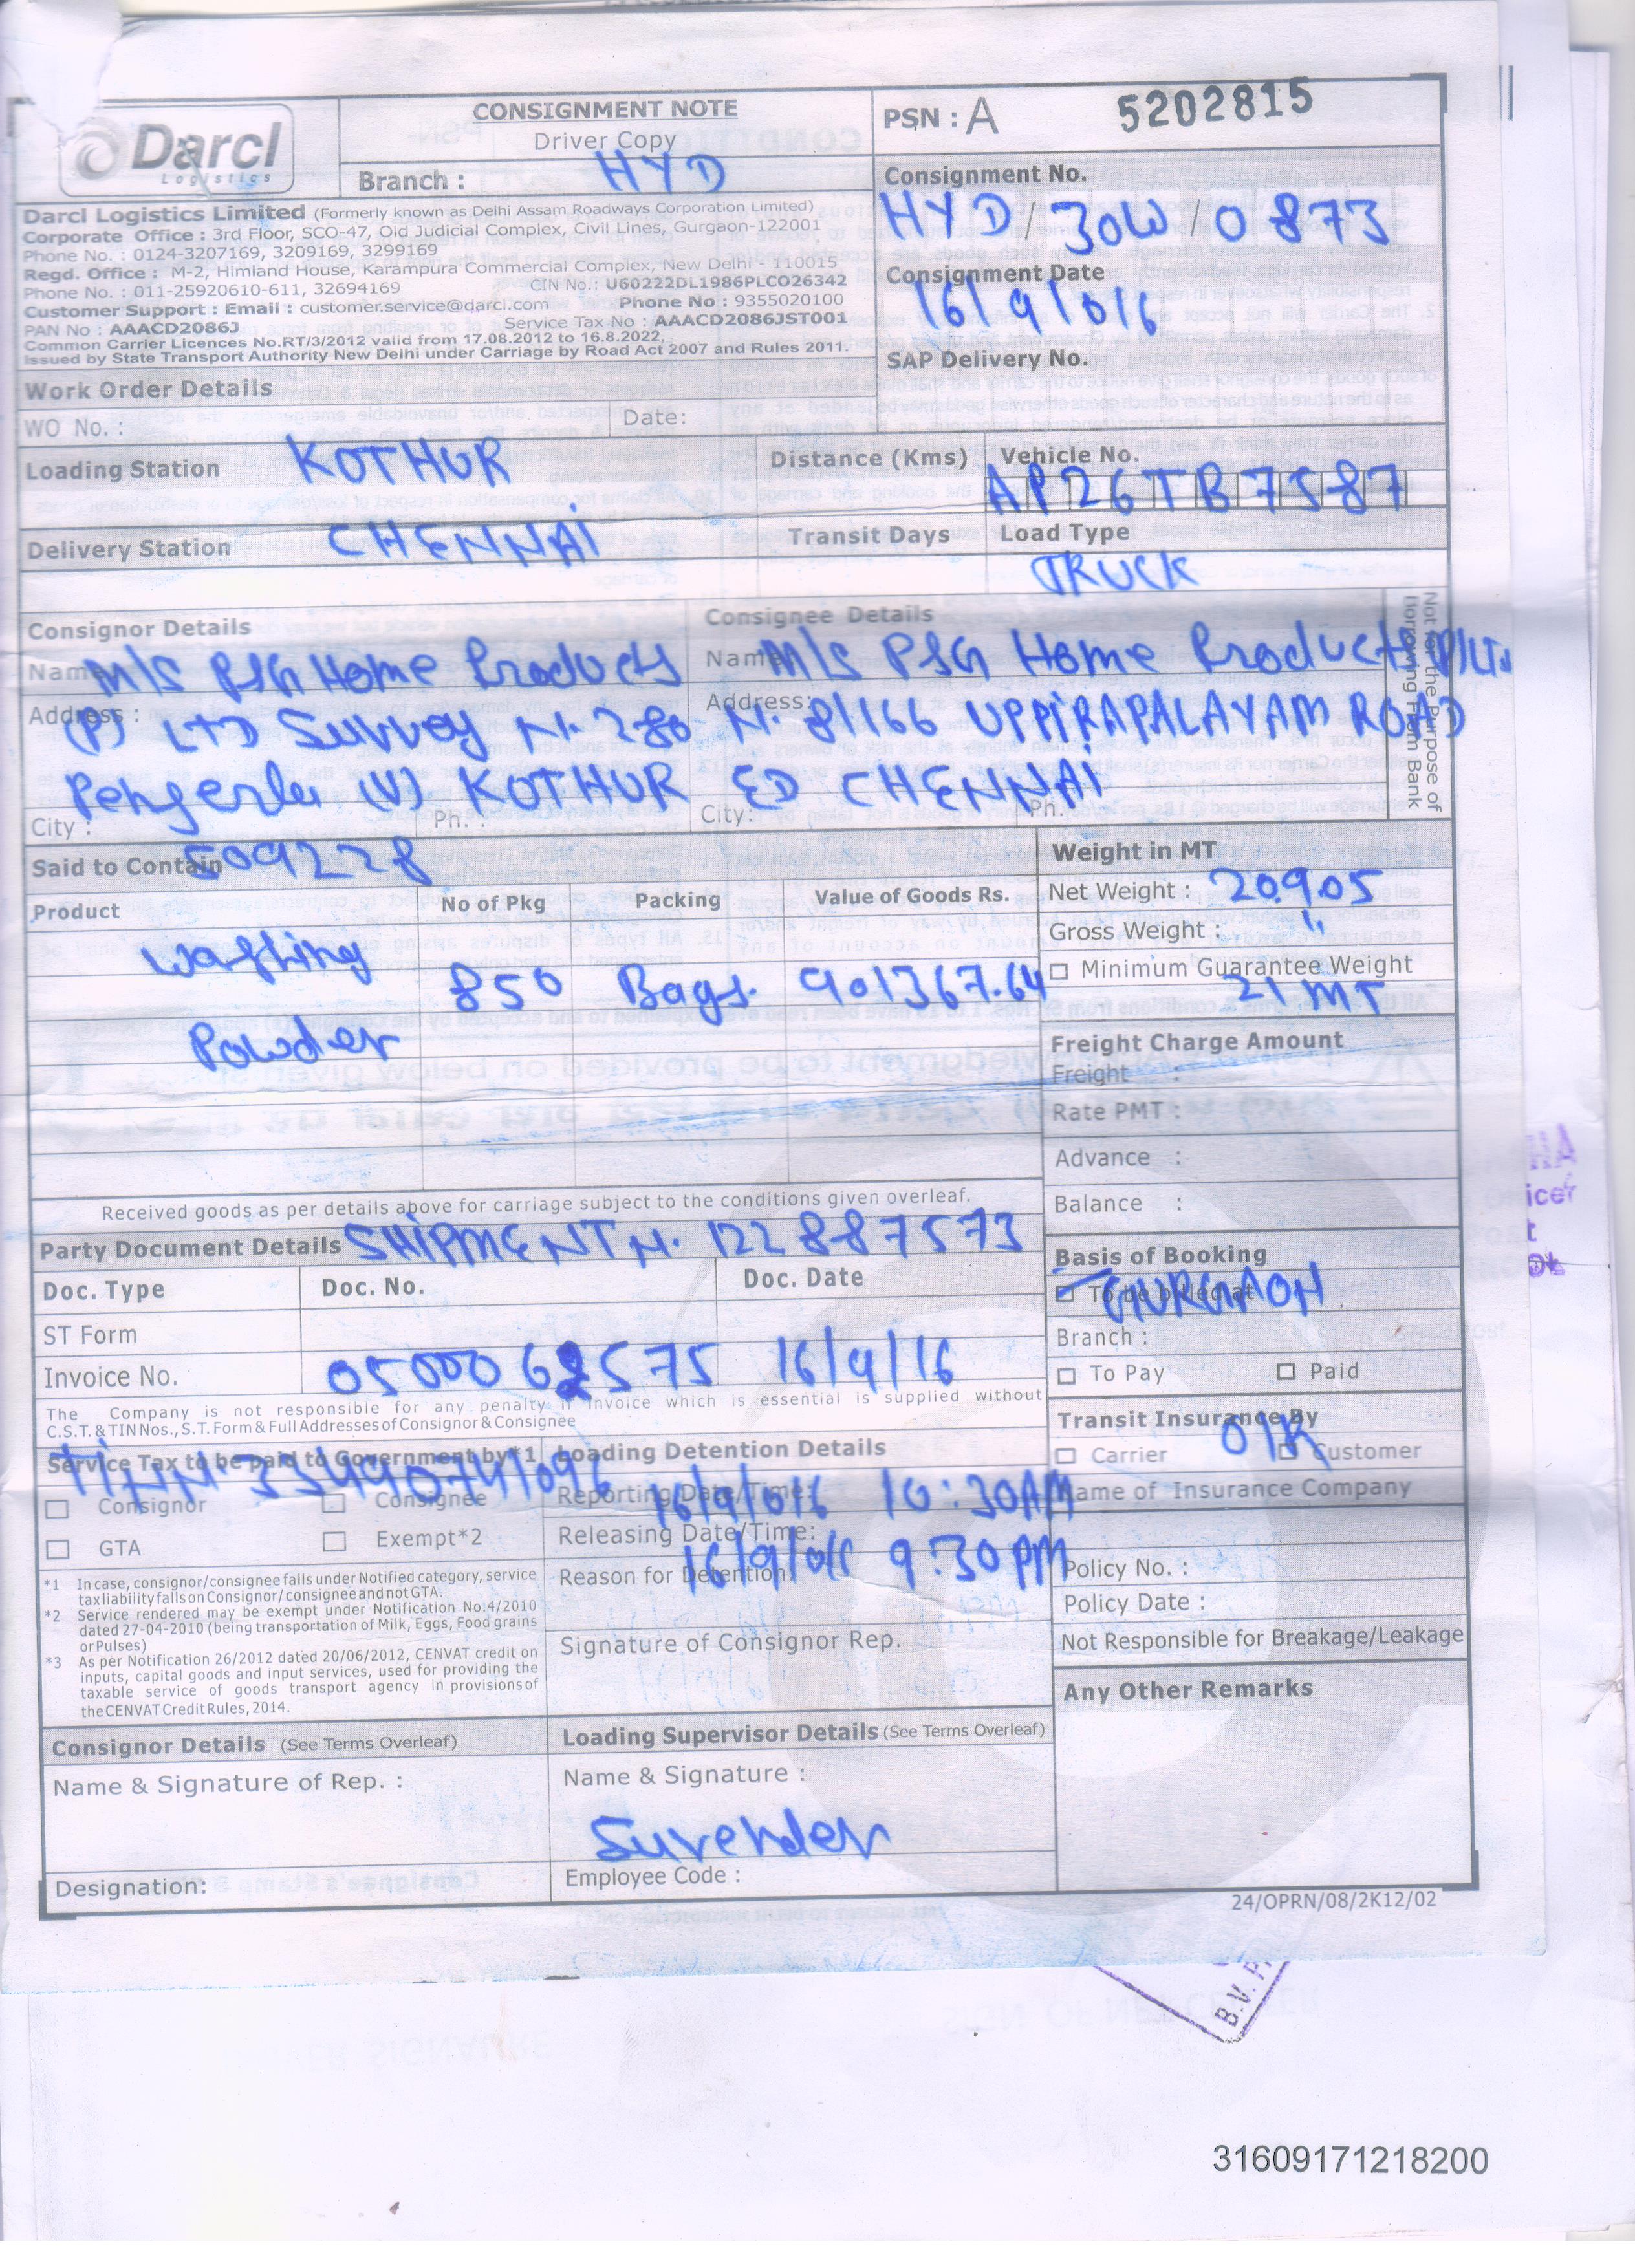 Darcl
Logistics
CONSIGNMENT NOTE
Driver Copy
Branch : HYD
PSN : A 5202815
Darcl Logistics Limited (Formerly known as Delhi Assam Roadways Corporation Limited)
Corporate Office : 3rd Floor, SCO-47, Old Judicial Complex, Civil Lines, Gurgaon-122001
Phone No. : 0124-3207169, 3209169, 3299169
Regd. Office : M-2, Himland House, Karampura Commercial Complex, New Delhi - 110015
Phone No. : 011-25920610-611, 32694169 CIN No.: U60222DL1986PLC026342
Customer Support : Email : customer.service@darcl.com Phone No : 9355020100
PAN No : AAACD2086J Service Tax No : AAACD2086JST001
Common Carrier Licences No.RT/3/2012 valid from 17.08.2012 to 16.8.2022,
Issued by State Transport Authority New Delhi under Carriage by Road Act 2007 and Rules 2011.
Consignment No.
HYD/30W/0873
Consignment Date
16/9/016
SAP Delivery No.
Work Order Details
WO No. : Date:
Loading Station KOTHUR
Distance (Kms)
Vehicle No.
AP26TB7587
Delivery Station CHENNAI
Transit Days
Load Type
TRUCK
Consignor Details
Name M/S P&G Home Products
Address : (P) LTD Survey N. 280
(V) KOTHUR
City : Ph. :
509228
Consignee Details
Name M/S P&G Home Product P/LTD
Address: N. 81/166 UPPIRAPALAYAM ROAD
ED CHENNAI
City: Ph.
Not for the Purpose of
Borrowing From Bank
Said to Contain
Product No of Pkg Packing Value of Goods Rs.
Washing 850 Bags. 901367.64
Powder
Weight in MT
Net Weight : 20.905
Gross Weight : "
Minimum Guarantee Weight
21 MT
Freight Charge Amount
Freight :
Rate PMT :
Advance :
Balance :
Received goods as per details above for carriage subject to the conditions given overleaf.
Party Document Details SHIPMENT N. 122887573
Doc. Type Doc. No. Doc. Date
ST Form
Invoice No. 0500062575 16/9/16
The Company is not responsible for any penalty if invoice which is essential is supplied without
C.S.T. & TIN Nos., S.T. Form & Full Addresses of Consignor & Consignee
Basis of Booking
To be billed at GURGAON
Branch :
To Pay Paid
Transit Insurance By
O/R
Carrier Customer
Name of Insurance Company
Policy No. :
Policy Date :
Not Responsible for Breakage/Leakage
Any Other Remarks
Service Tax to be paid to Government by*1
TIN N. 33490741096
Consignor Consignee
GTA Exempt*2
Loading Detention Details
Reporting Date/Time: 16/9/016 10:30AM
Releasing Date/Time: 16/9/016 9:30PM
Reason for Detention:
Signature of Consignor Rep.
*1 In case, consignor/consignee falls under Notified category, service
tax liability falls on Consignor/consignee and not GTA.
*2 Service rendered may be exempt under Notification No.4/2010
dated 27-04-2010 (being transportation of Milk, Eggs, Food grains
or Pulses)
*3 As per Notification 26/2012 dated 20/06/2012, CENVAT credit on
inputs, capital goods and input services, used for providing the
taxable service of goods transport agency in provisions of
the CENVAT Credit Rules, 2014.
Consignor Details (See Terms Overleaf)
Name & Signature of Rep. :
Designation:
Loading Supervisor Details (See Terms Overleaf)
Name & Signature :
Surender
Employee Code :
24/OPRN/08/2K12/02
B.V.P.
31609171218200